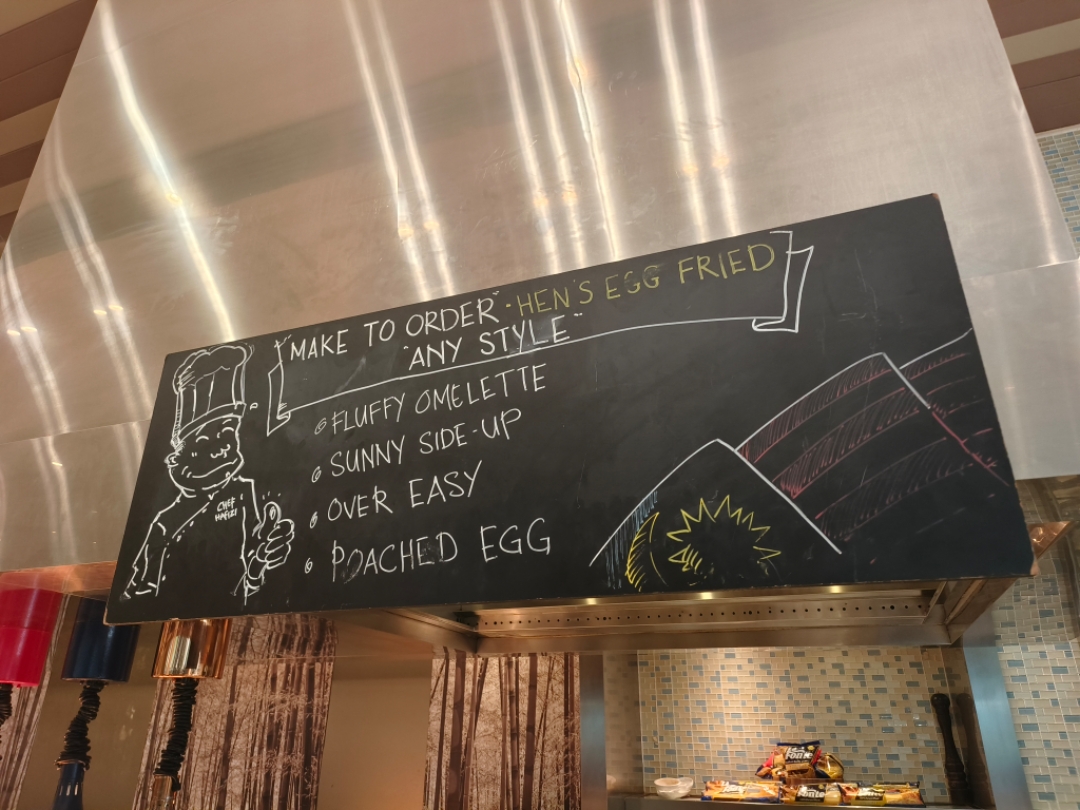 "MAKE TO ORDER" - HEN'S EGG FRIED
"ANY STYLE"
FLUFFY OMELETTE
SUNNY SIDE-UP
OVER EASY
POACHED EGG
CHEF